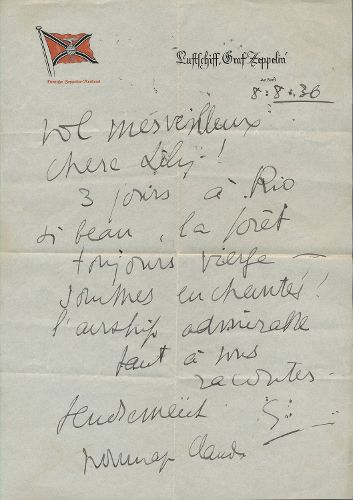 Luftschiff "Graf Zeppelin"
Deutsche Zeppelin-Reederei
8.8.36
Vol merveilleux
chere Lily!
3 jours à Rio
si beau, la forêt
toujours vierge —
sommes enchantés!
l'airship admirable
tant à vous
raconter.
tendrement